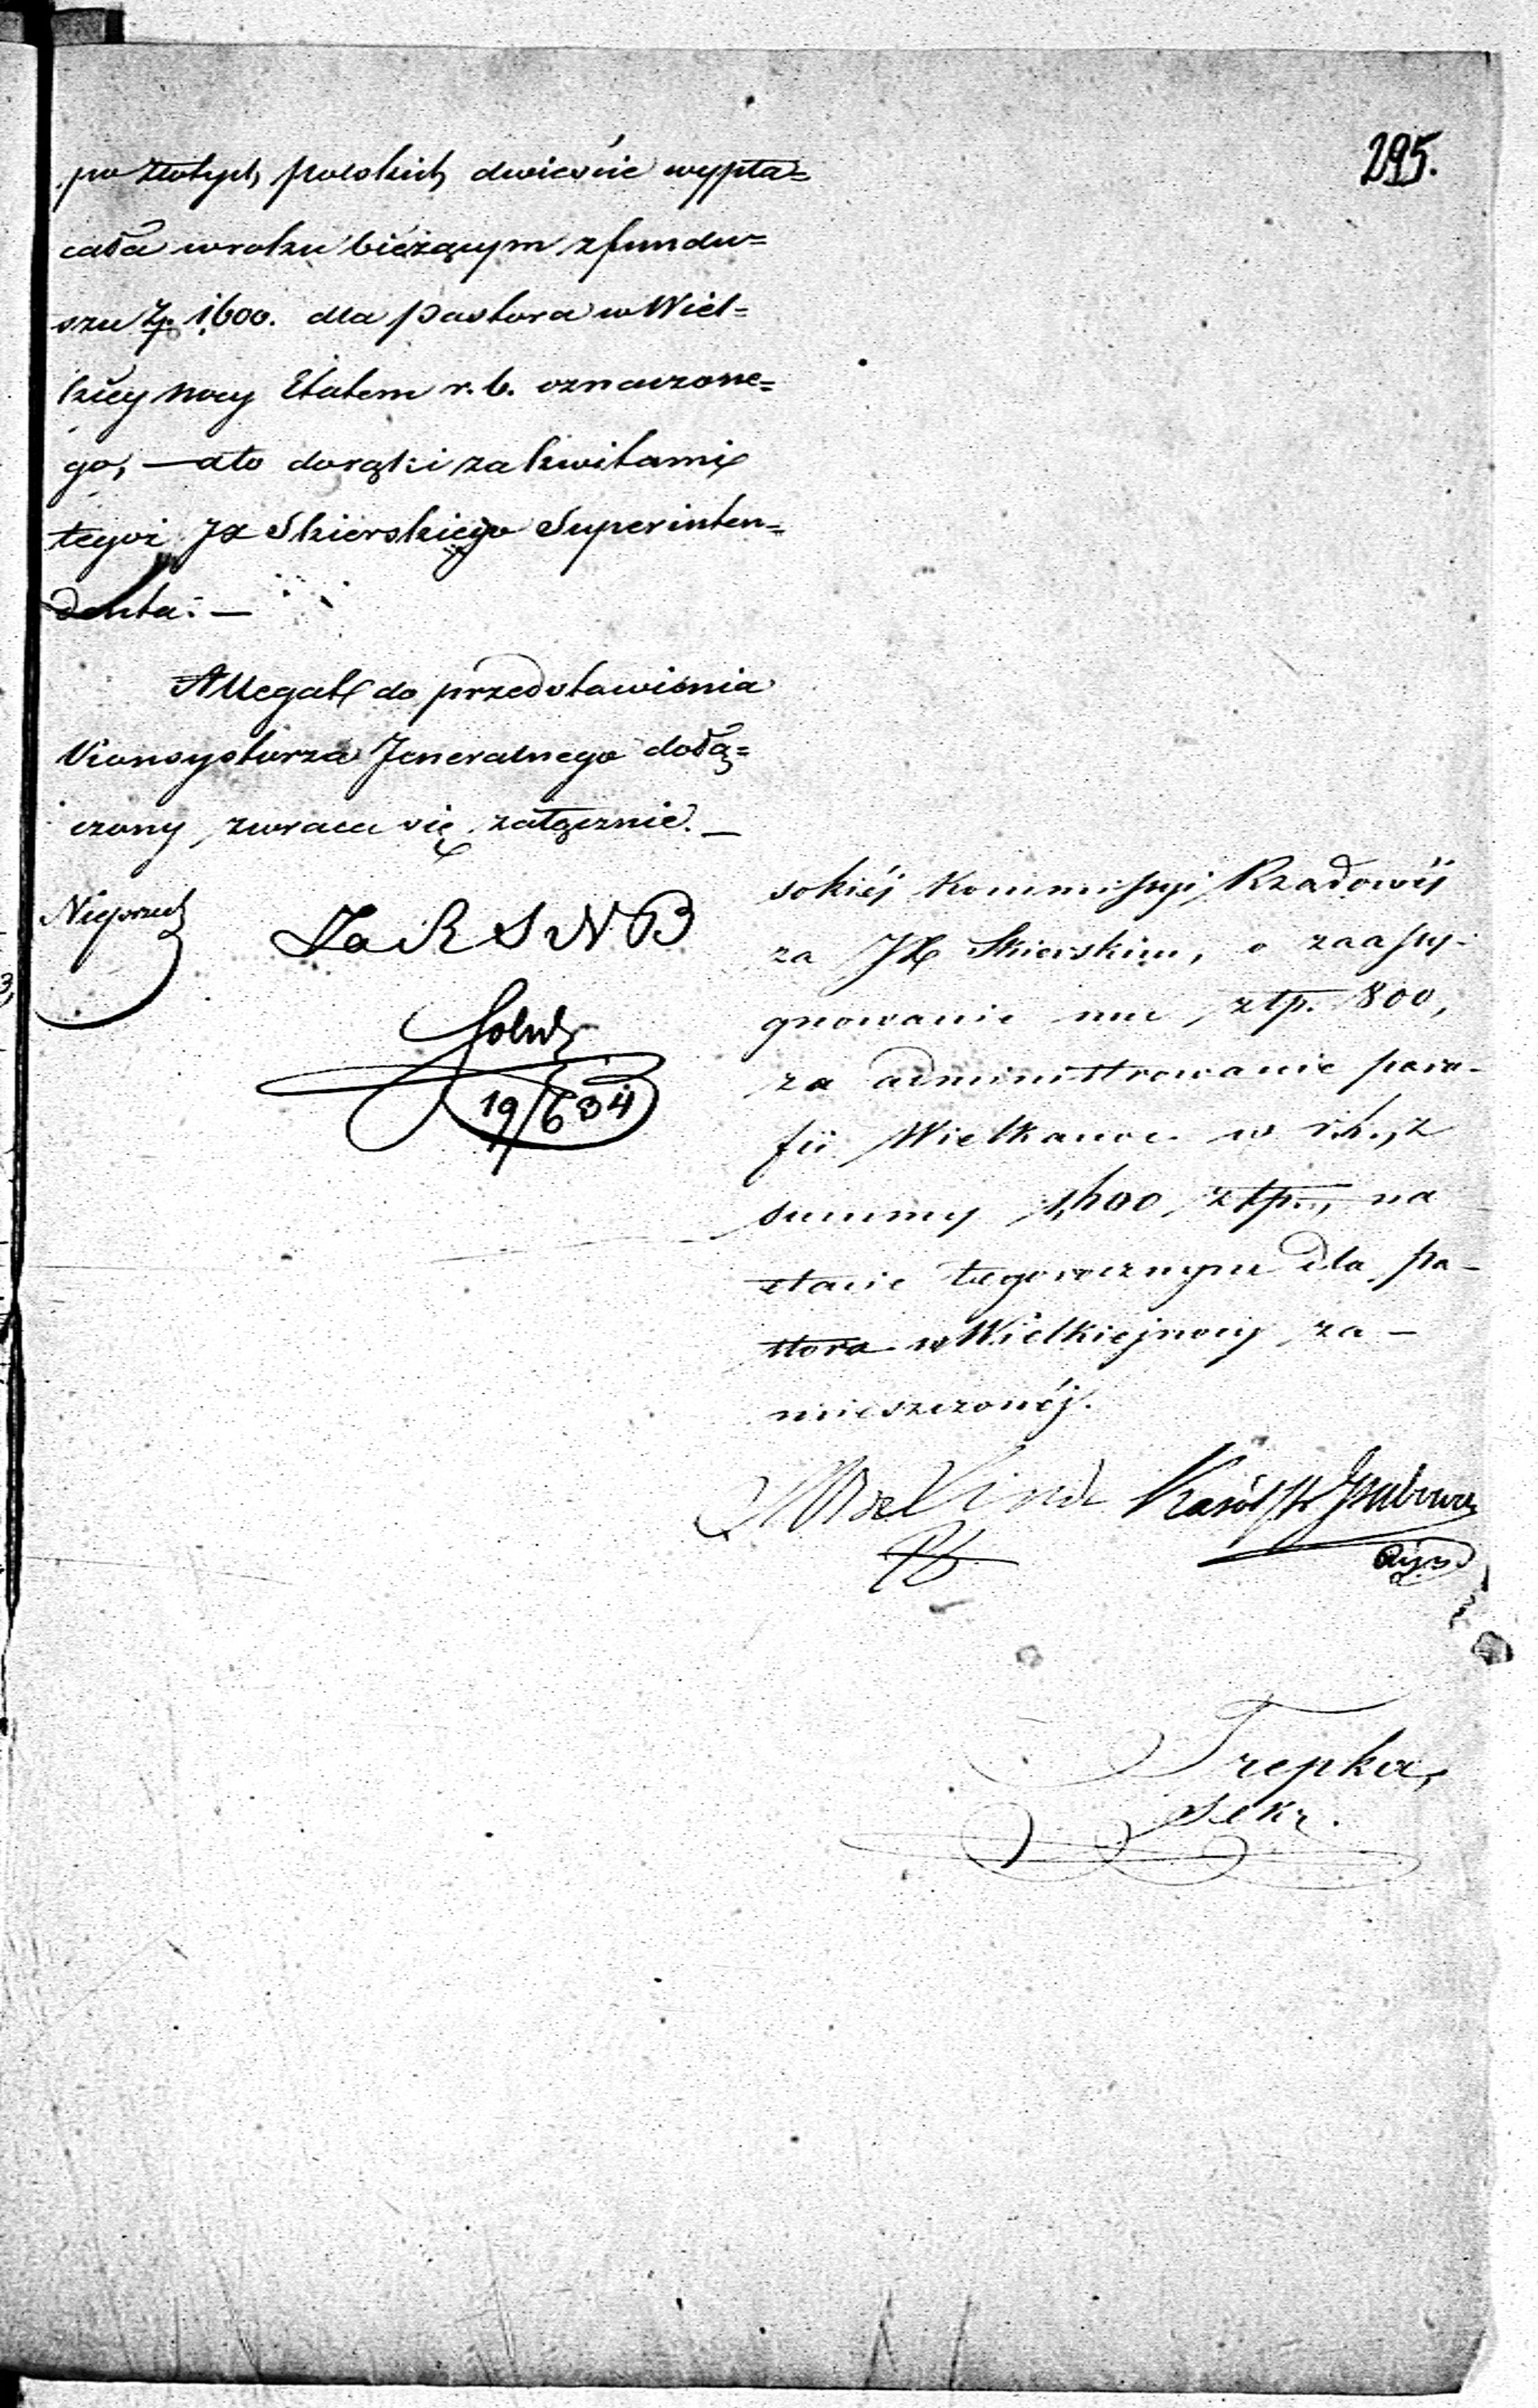 295.
po złotych polskich dwieście wypła=
cała w roku bieżącym z fundu=
szu Zp. 1600. dla Pastora w Wiel=
kiey nocy Etatem r. b. oznaczone=
go, — a to do rąk i za kwitami
tegoż JX Skierskiego Superinten=
denta. —
Allegat do przedstawienia
Konsystorza Jeneralnego dołą=
czony, zwraca się załącznie. —
Za R S N B
19/6 34
sokiéj Kommissyi Rządowéj
za JX Skierskim, o zaassy-
gnowanie mu złp. 800,
za administrowanie para-
fii Wielkanoc w r. b., z
summy 1,600 złp., na
etacie tegorocznym dla pa-
stora w Wielkiejnocy za-
mieszczonéj.
Karól
Trepka,
Sekr.